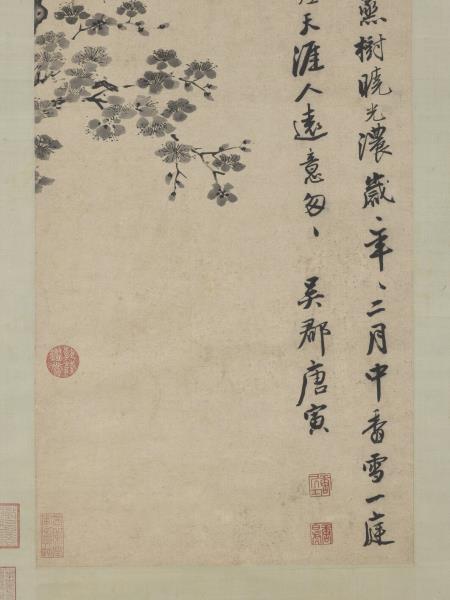 樹曉光濃歲〻年〻二月中香雪一庭
天涯人遠意匆〻
吳郡唐寅